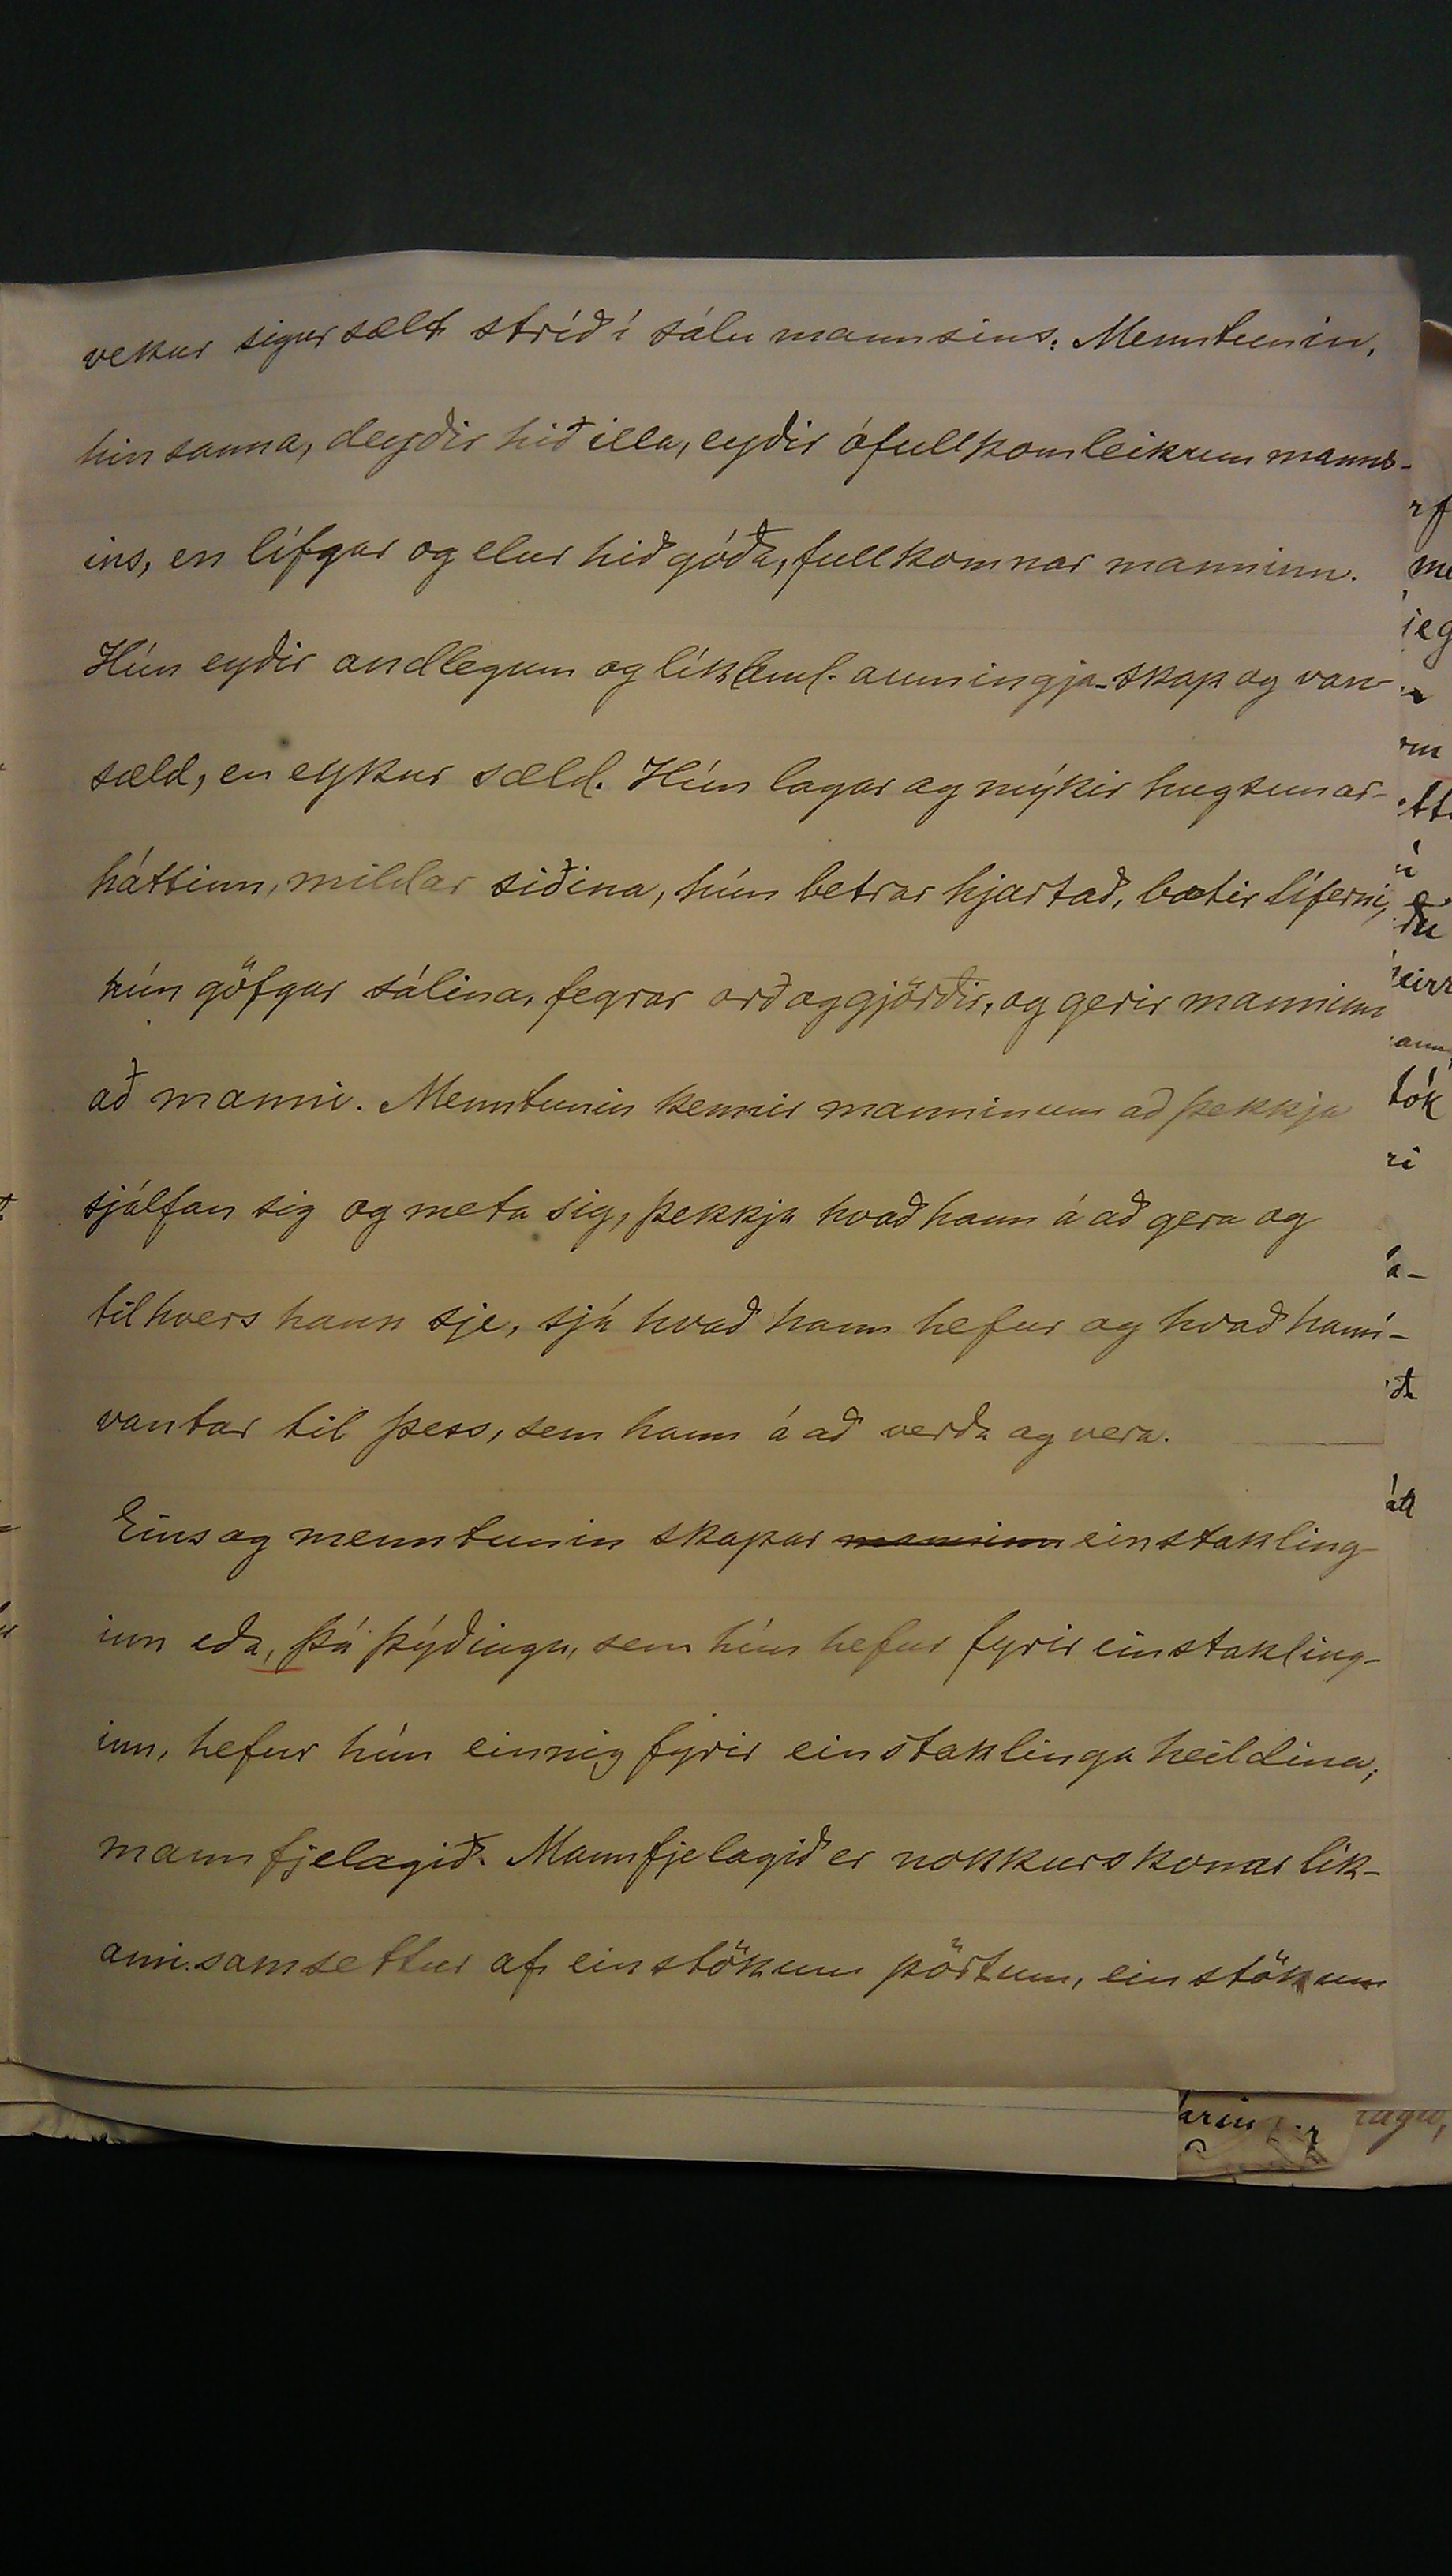 vekur sigursælt stríð í sálu mannsins: Menntunin,
hin sanna, deyðir hið illa, eyðir ófullkomleikum manns-
ins, en lífgar og elur hið góða, fullkomnar manninn.
Hún eyðir andlegum og líkaml. aumingja-skap og van-
sæld, en eykur sæld. Hún lagar og mýkir hugsunar-
háttinn, mildar siðina, hún betrar hjartað, bætir líferni,
hún göfgar sálina, fegrar orð og gjörðir, og gerir manninn
að manni. Menntunin kennir manninum að þekkja
sjálfan sig og meta sig, þekkja hvað hann á að gera og
til hvers hann sje, sjá hvað hann hefur og hvað hann
vantar til þess, sem hann á að verða og vera.
Eins og menntunin skapar manninn einstakling-
inn eða, þá þýðingu, sem hún hefur fyrir einstakling-
inn, hefur hún einnig fyrir einstaklinga heildina,
mannfjelagið. Mannfjelagið er nokkurskonar lík-
ami samsettur af einstökum pörtum, einstökum
tók